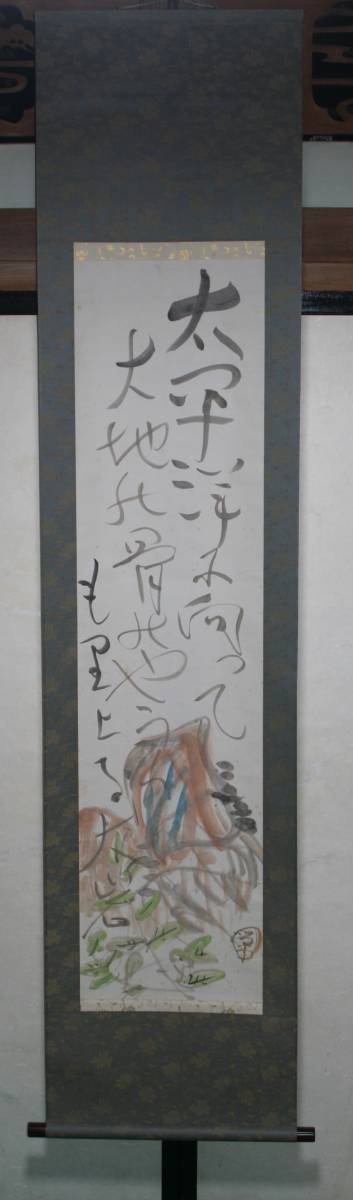 太平洋に向って
大地の骨のやうに
もり上る大岩